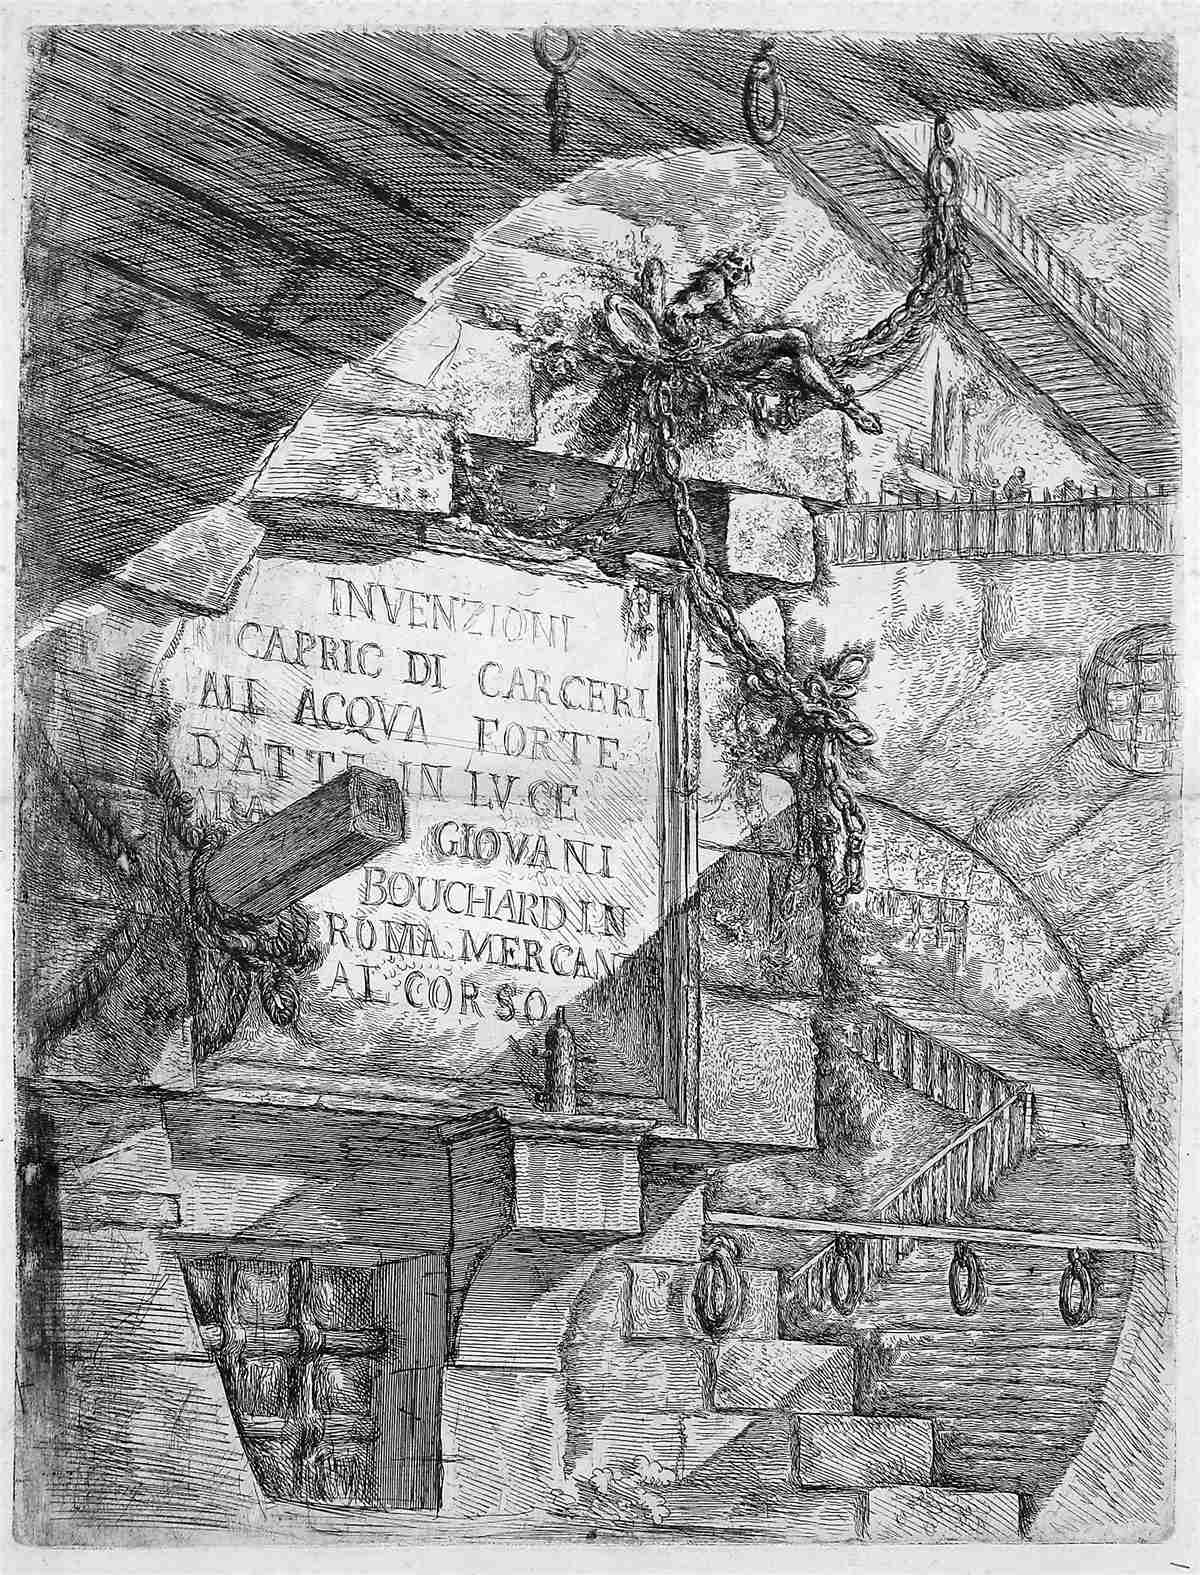 INVENZIONI
CAPRIC DI CARCERI
ALL ACQVA FORTE
DATTE IN LVCE
GIOVANI
BOUCHARD IN
ROMA MERCAN
AL CORSO